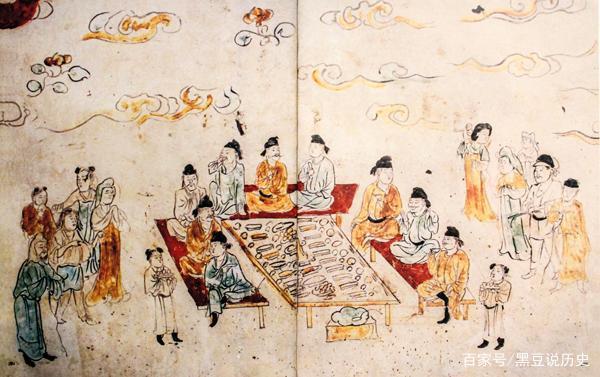 百家号/黑豆说历史